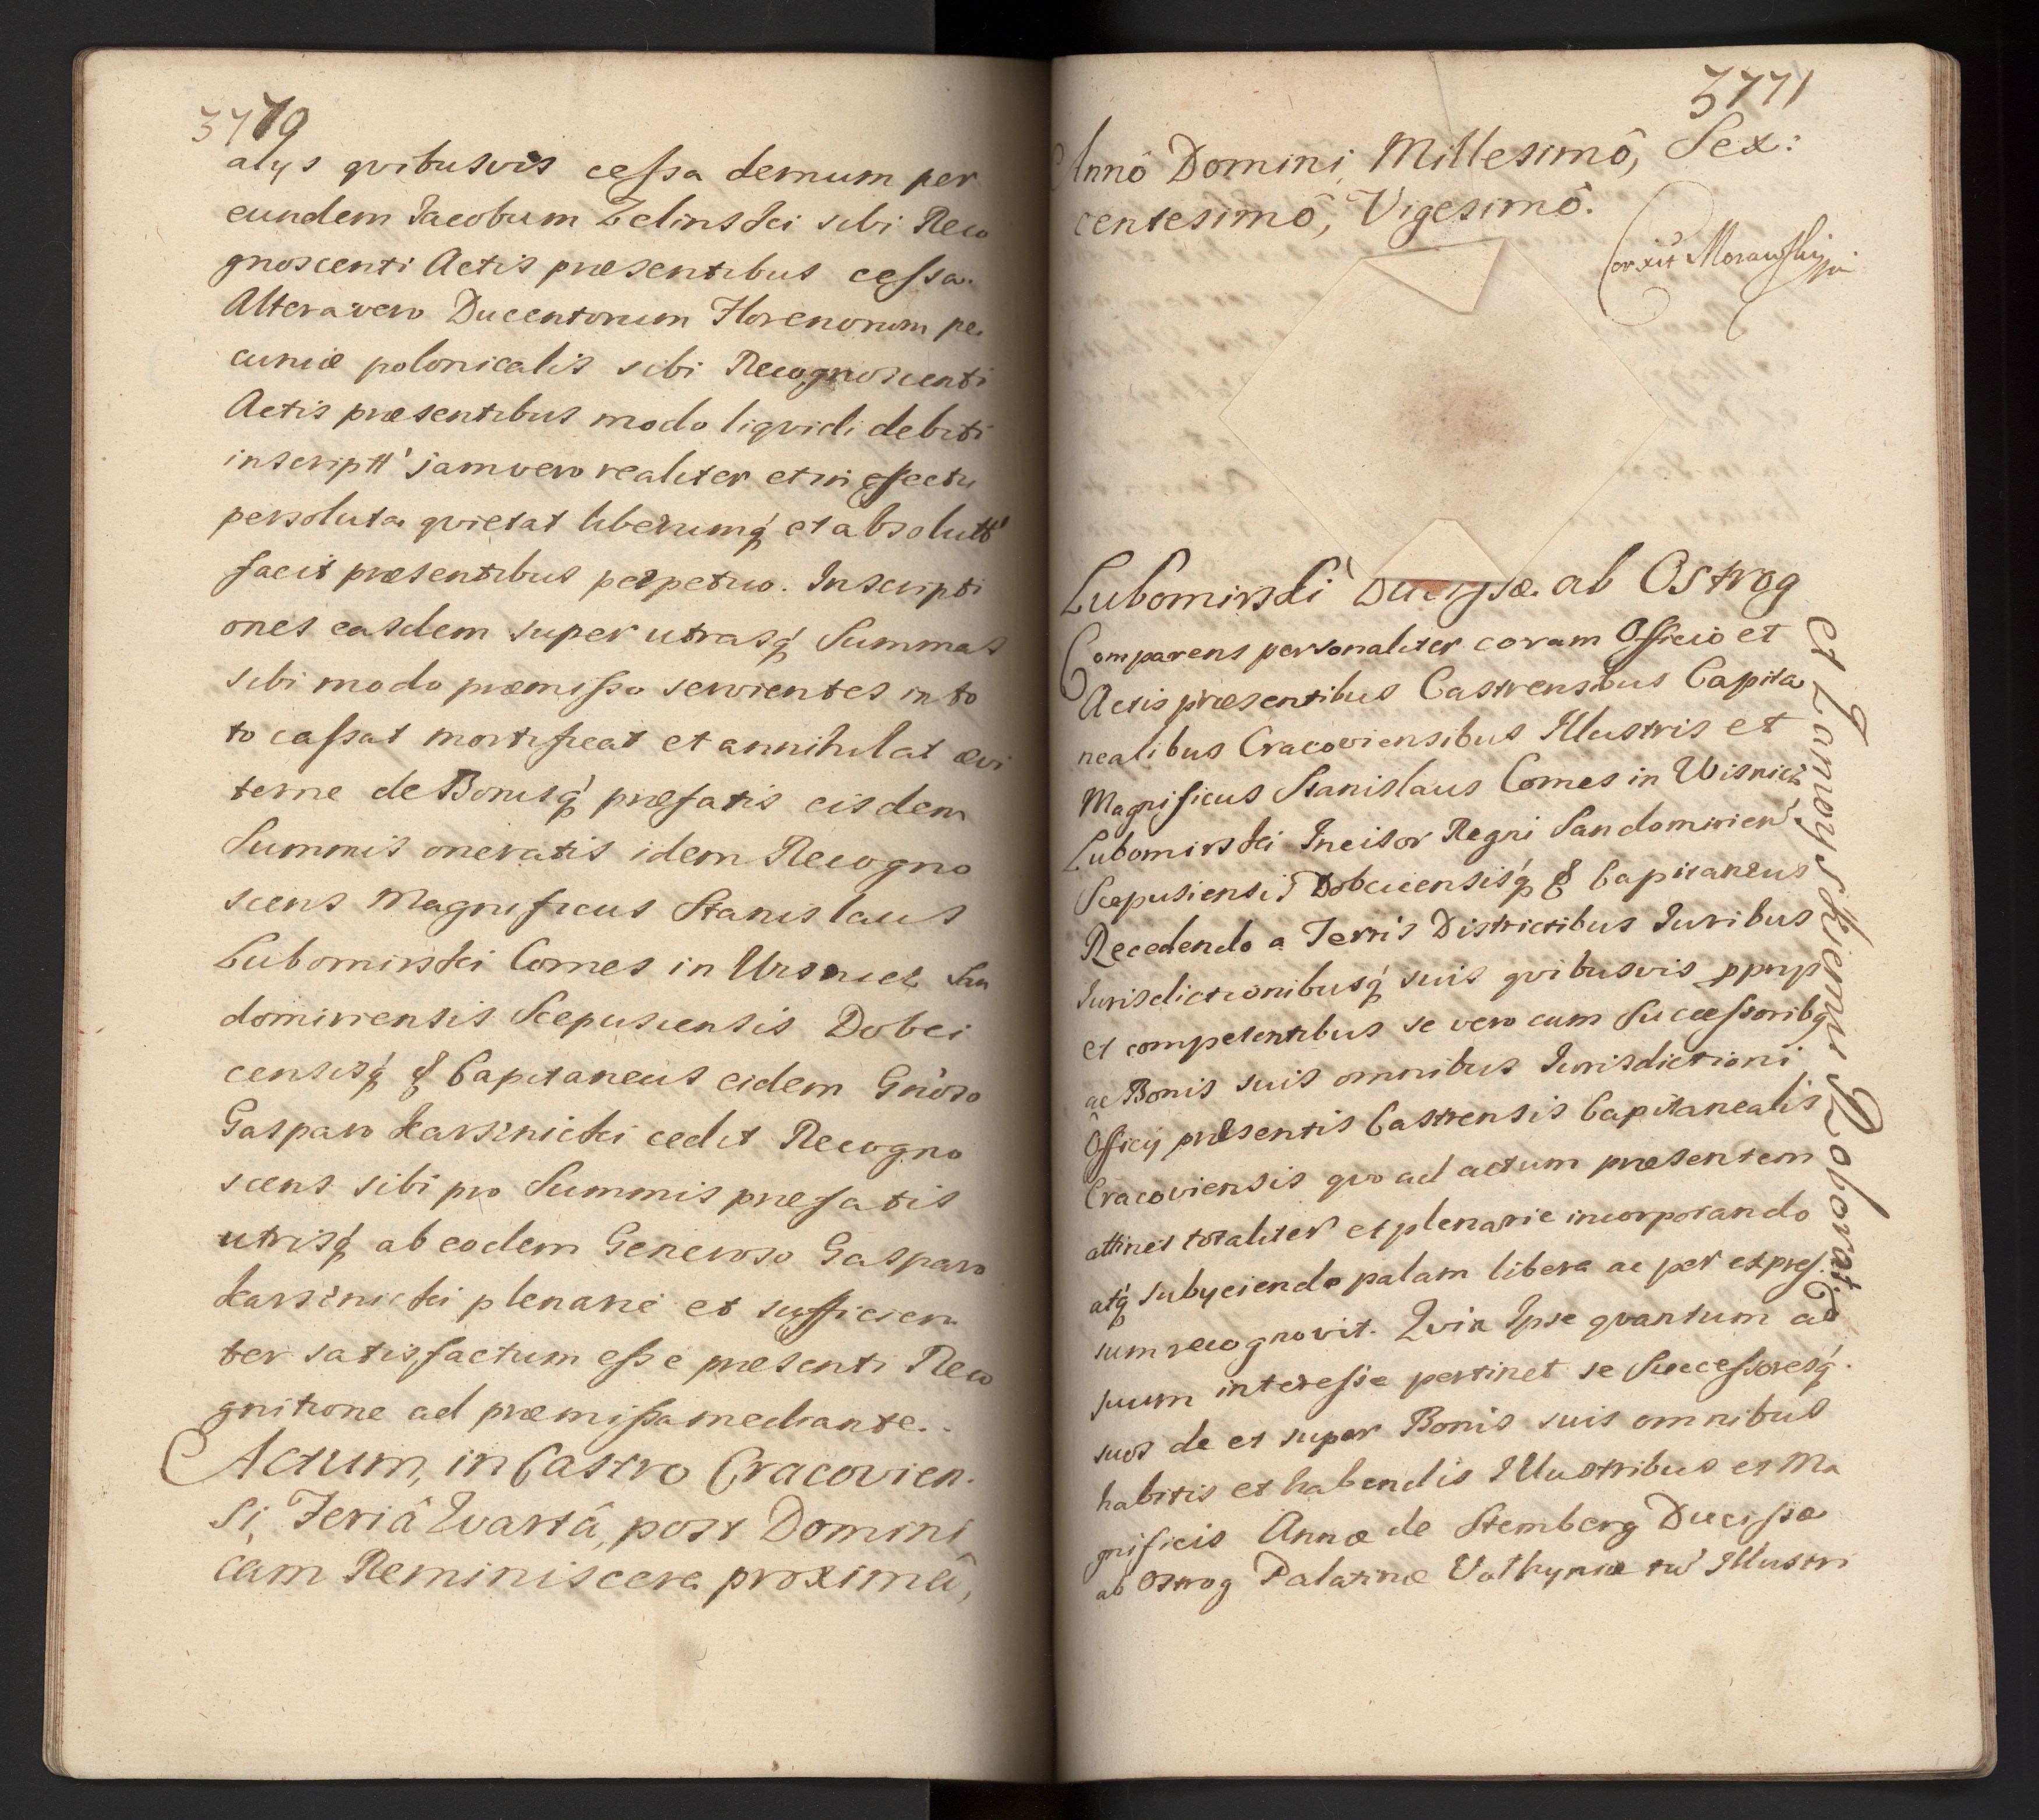 3770
alijs qvibusvis cessa demum per
eundem Jacobum Zelinski sibi Reco
gnoscenti Actis præsentibus cessa.
Altera vero Ducentorum Florenorum pe
cuniæ polonicalis sibi Recognoscenti
Actis præsentibus modo liqvidi debiti
inscriptt' jam vero realiter et in effectu
persoluta qvietat liberumq' et absolutt'
facit præsentibus perpetuo. Inscripti
ones easdem super utrasq' Summas
sibi modo præmisso servientes in to
to cassat mortificat et annihilat ævi
terne de Bonisq' præfatis eisdem
Summis oneratis idem Recogno
scens Magnificus Stanislaus
Lubomirski Comes in Wisnicz San
domiriensis Scepusiensis Dobci
censisq' & Capitaneus eidem Gn'oso
Gasparo Karsznicki cedit Recogno
scens sibi pro Summis præfatis
utrisq' ab eodem Generoso Gasparo
Karsznicki plenarie et sufficien
ter satisfactum esse præsenti Reco
gnitione ad præmissa mediante.
Actum, in Castro Cracovien.
si, Feriâ Qvartâ, post Domini
cam Reminiscere proximâ,
3771
Annô Domini, Millesimô, Sex:
centesimô, Vigesimô.
Corxit Morawski mpp
Lubomirski Ducissæ ab Ostrog
et Zamoyskiemu Roborat
Comparens personaliter coram Officio et
Actis præsentibus Castrensibus Capita
nealibus Cracoviensibus Illustris et
Magnificus Stanislaus Comes in Wisnicz
Lubomirski Incisor Regni Sandomirien'.
Scepusiensis Dobcicensisq' & Capitaneus
Recedendo a Terris Districtibus Iuribus
Iurisdictionibusq' suis qvibusvis pprijs
et competentibus se vero cum Successoribq
ac Bonis suis omnibus Iurisdictioni
Officij præsentis Castrensis Capitanealis
Cracoviensis qvo ad actum præsentem
attinet totaliter et plenarie incorporando
atq' subyciendo palam libere ac per expres.
sum recognovit. Qvia Ipse qvantum ad
suum interesse pertinet se Successoresq'.
suos de et super Bonis suis omnibus
habitis et habendis Illustribus et Ma
gnificis Annæ de Stemberg Ducissæ
ab Ostrog Palatinæ Volhyniæ tw' Illustri